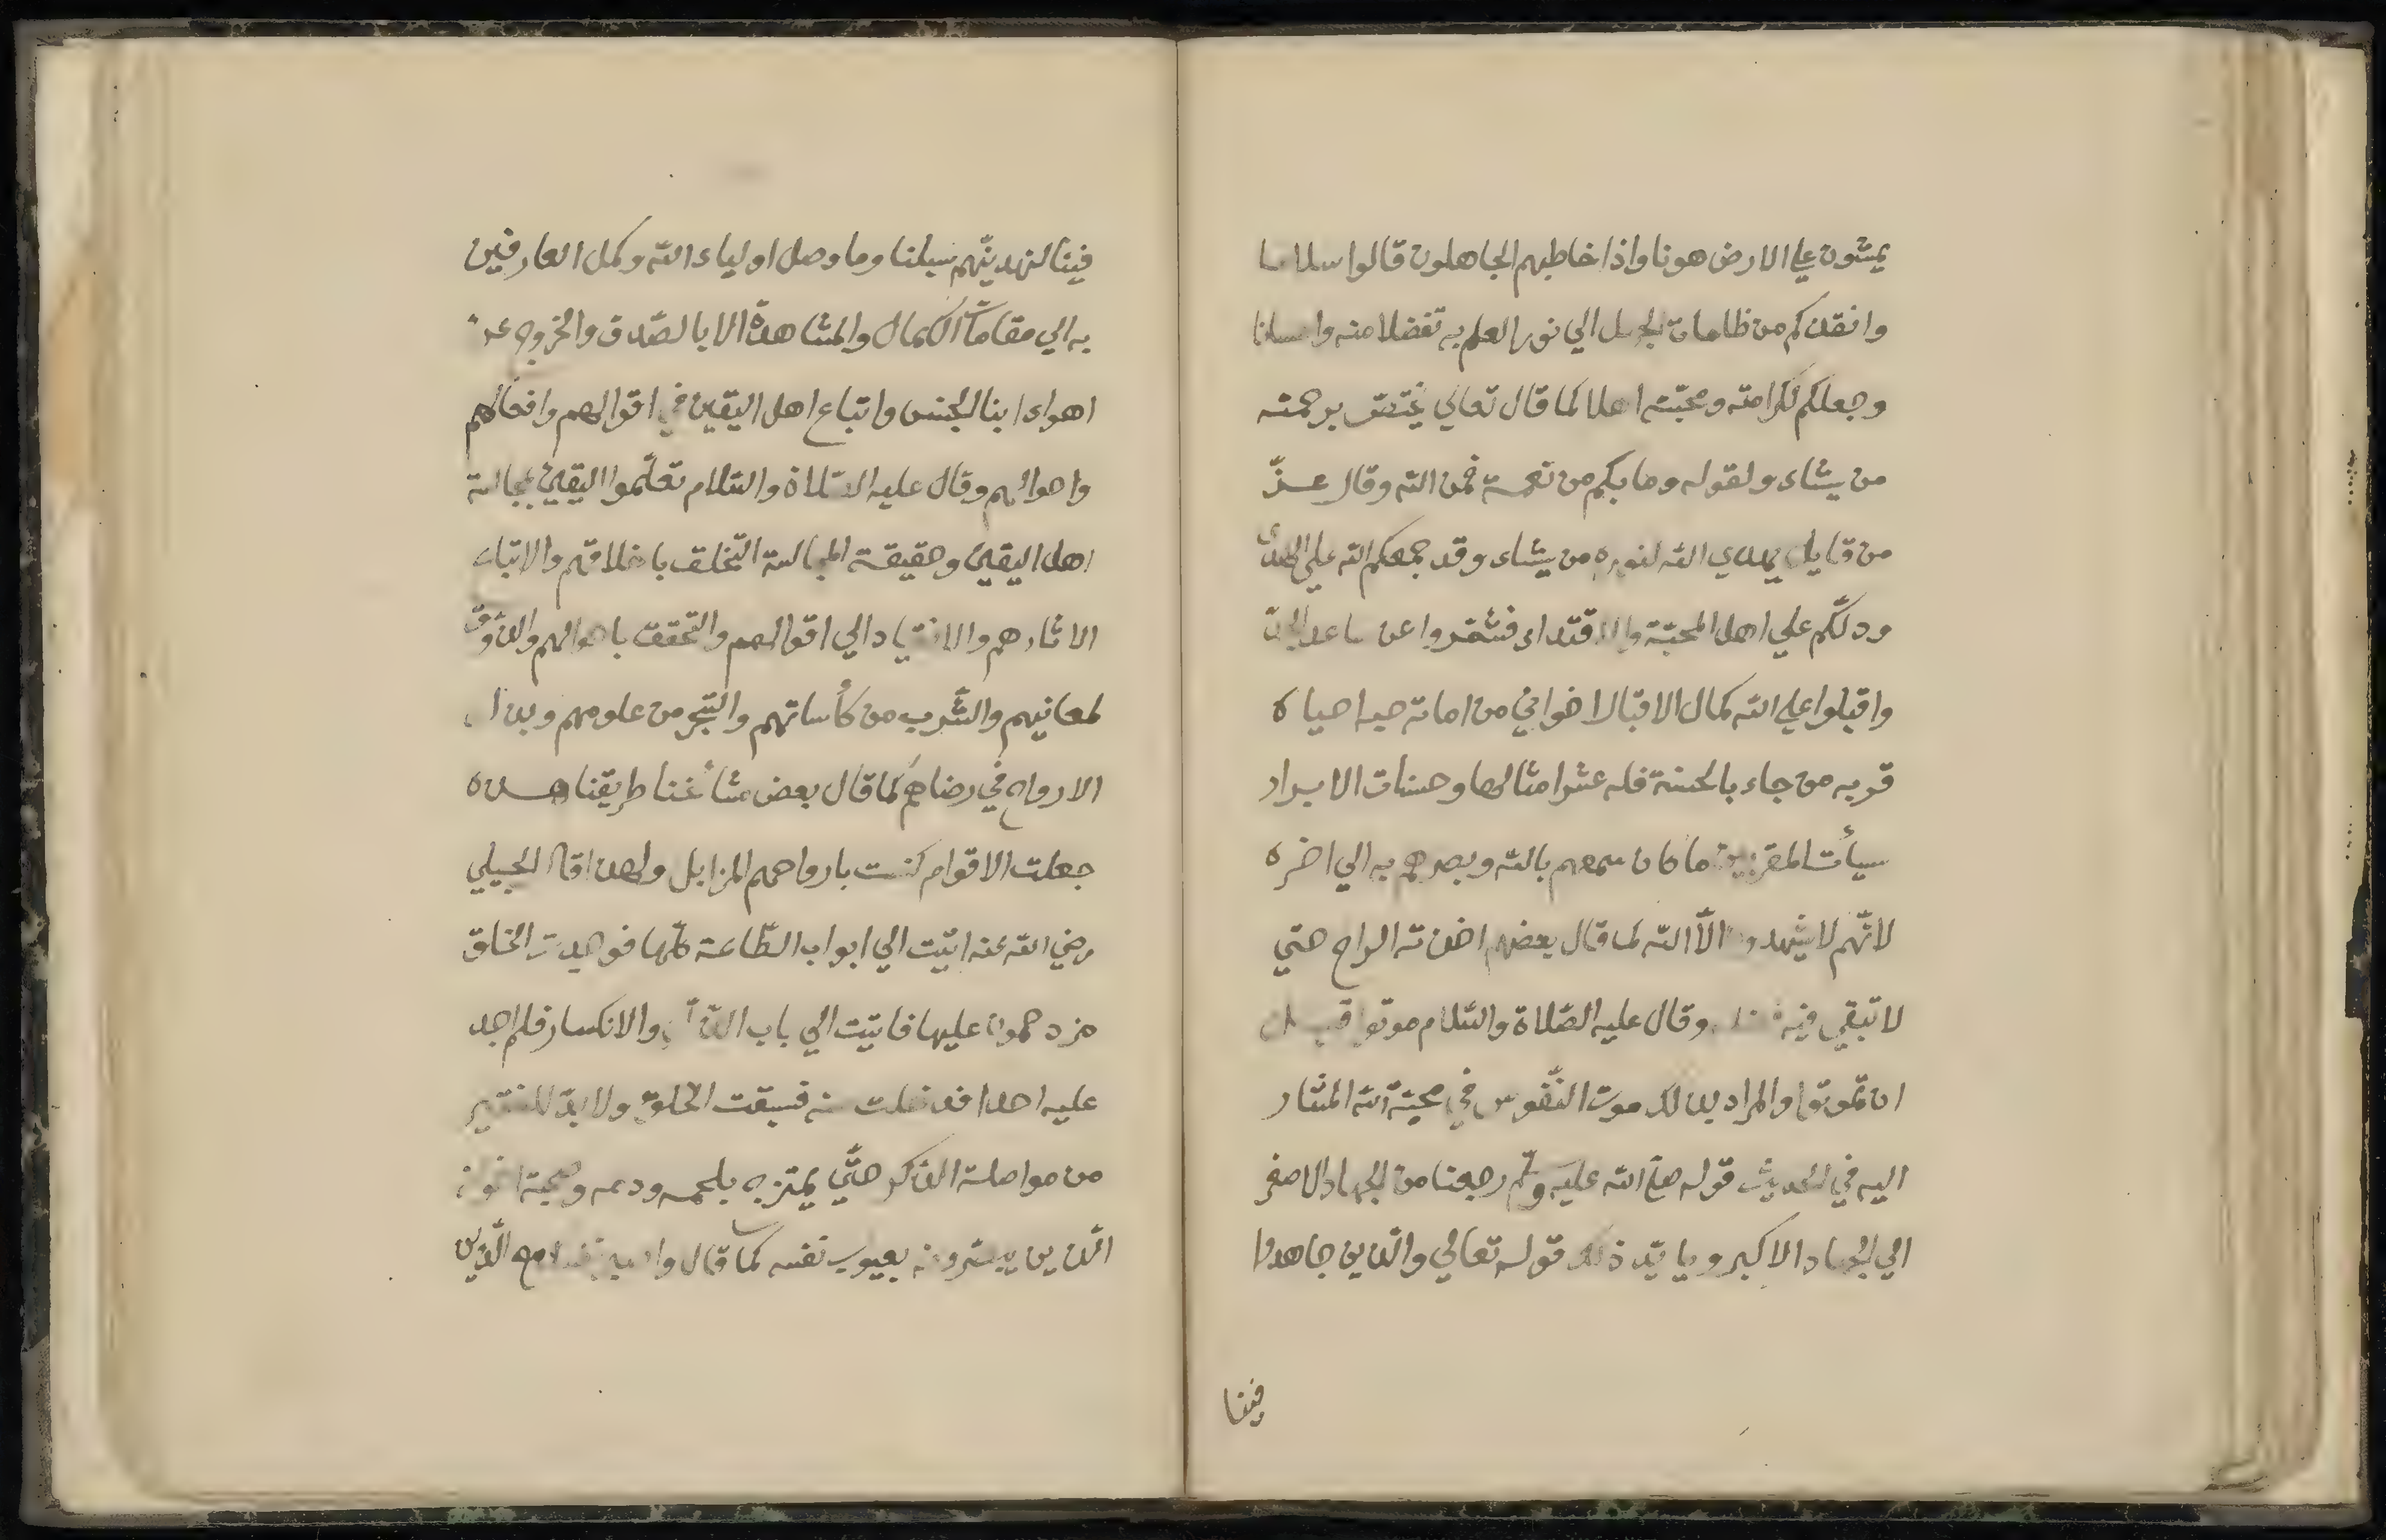 يمشون علي الارض هونا واذا خاطبهم الجاهلون قالوا سلاما
وانقذكم من ظلمات الجهل الي نور العلم به تفضلا منه واحسانا
وجعلكم لكرامته ومحبّته اهلا كما قال تعالي يختصّ برحمته
من يشاء ولقوله وما بكم من نعمة فمن الله وقال عزّ
من قايل يهدي الله لنوره من يشاء وقد جمعكم الله علي الهدى
ودلّكم علي اهل المحبّة والاقتداء فشمّروا عن ساعد الجدّ
واقبلوا علي الله كمال الاقبال اخواني من اماته حبه احياه
قربه من جاء بالحسنة فله عشر امثالها وحسنات الابرار
سيأت المقربين ما كان سمعهم بالله وبصرهم به الي اخره
لانّهم لا يشهدون الّا الله كما قال بعضهم اخذته الراح حتي
لا تبقي فيه وقال عليه الصّلاة والسّلام موتوا قبل
ان تموتوا والمراد بذلك موت النّفوس في محبّة الله المشار
اليه في الحديث قوله صلى الله عليه وسلّم رجعنا من الجهاد الاصغر
الي الجهاد الاكبر ويايّد ذلك قوله تعالي والّذين جاهدوا
فينا
فينا لنهدينّهم سبلنا وما وصل اولياء الله وكمل العارفين
به الي مقامات الكمال والمشاهدة الا بالصّدق والخروج عن
اهواء ابنا الجنس واتباع اهل اليقين في اقوالهم وافعالهم
واحوالهم وقال عليه الصّلاة والسّلام تعلّموا اليقين بمجالسة
اهل اليقين وحقيقة المجالسة التّخلق باخلاقهم والاتباع
الاثارهم والانقياد الي اقوالهم والتحقق باحوالهم والذّوق
لمعانيهم والشّرب من كأساتهم والتبحّر من علومهم وبذل
الارواح في رضاهم كما قال بعض مشائخنا طريقنا هذه
جعلت الاقوام كنست بارواحهم المزابل ولهذا قال الجيلي
رضي الله عنه اتيت الي ابواب الطّاعة كلّها فوجدت الخلق
مزدحمون عليها فاتيت الي باب الذّلّ والانكسار فلم اجد
عليه احدا فدخلت منه فسبقت الخلق ولا بدّ للفقير
من مواصلة الذكر حتّي يمتزج بلحمه ودمه وصحبة اخوانه
الّذين يبشرونه بعيوب نفسه كما قال واصبر نفسك مع الّذين